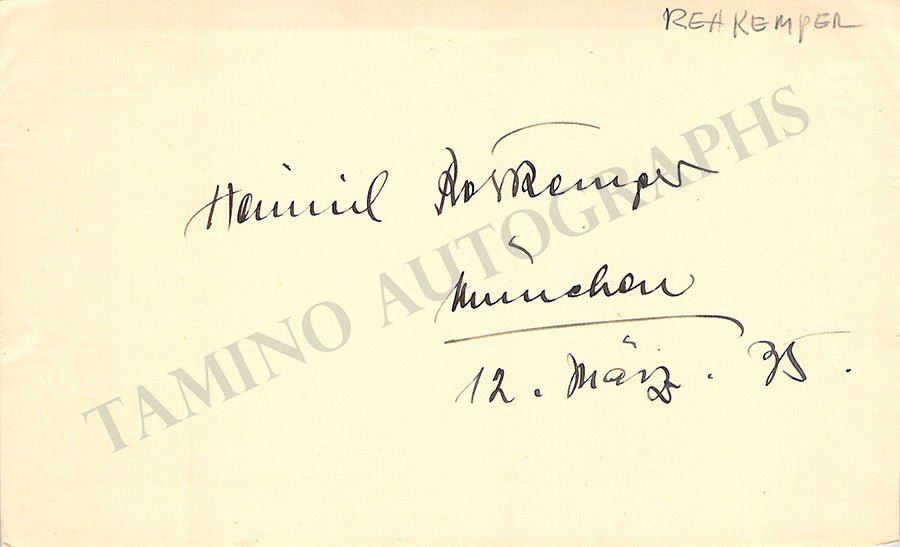 REHKEMPER
Heinrich Rehkemper
München
12. März. 35.
TAMINO AUTOGRAPHS